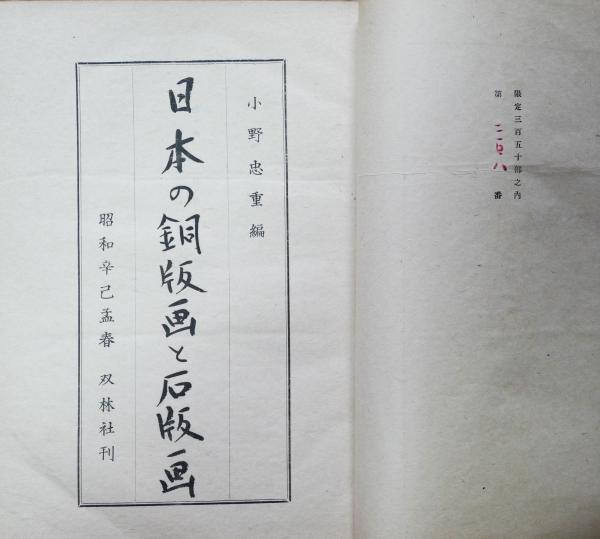 限定三百五十部之内
第二四八番
小野忠重編
日本の銅版画と石版画
昭和辛己孟春 双林社刊